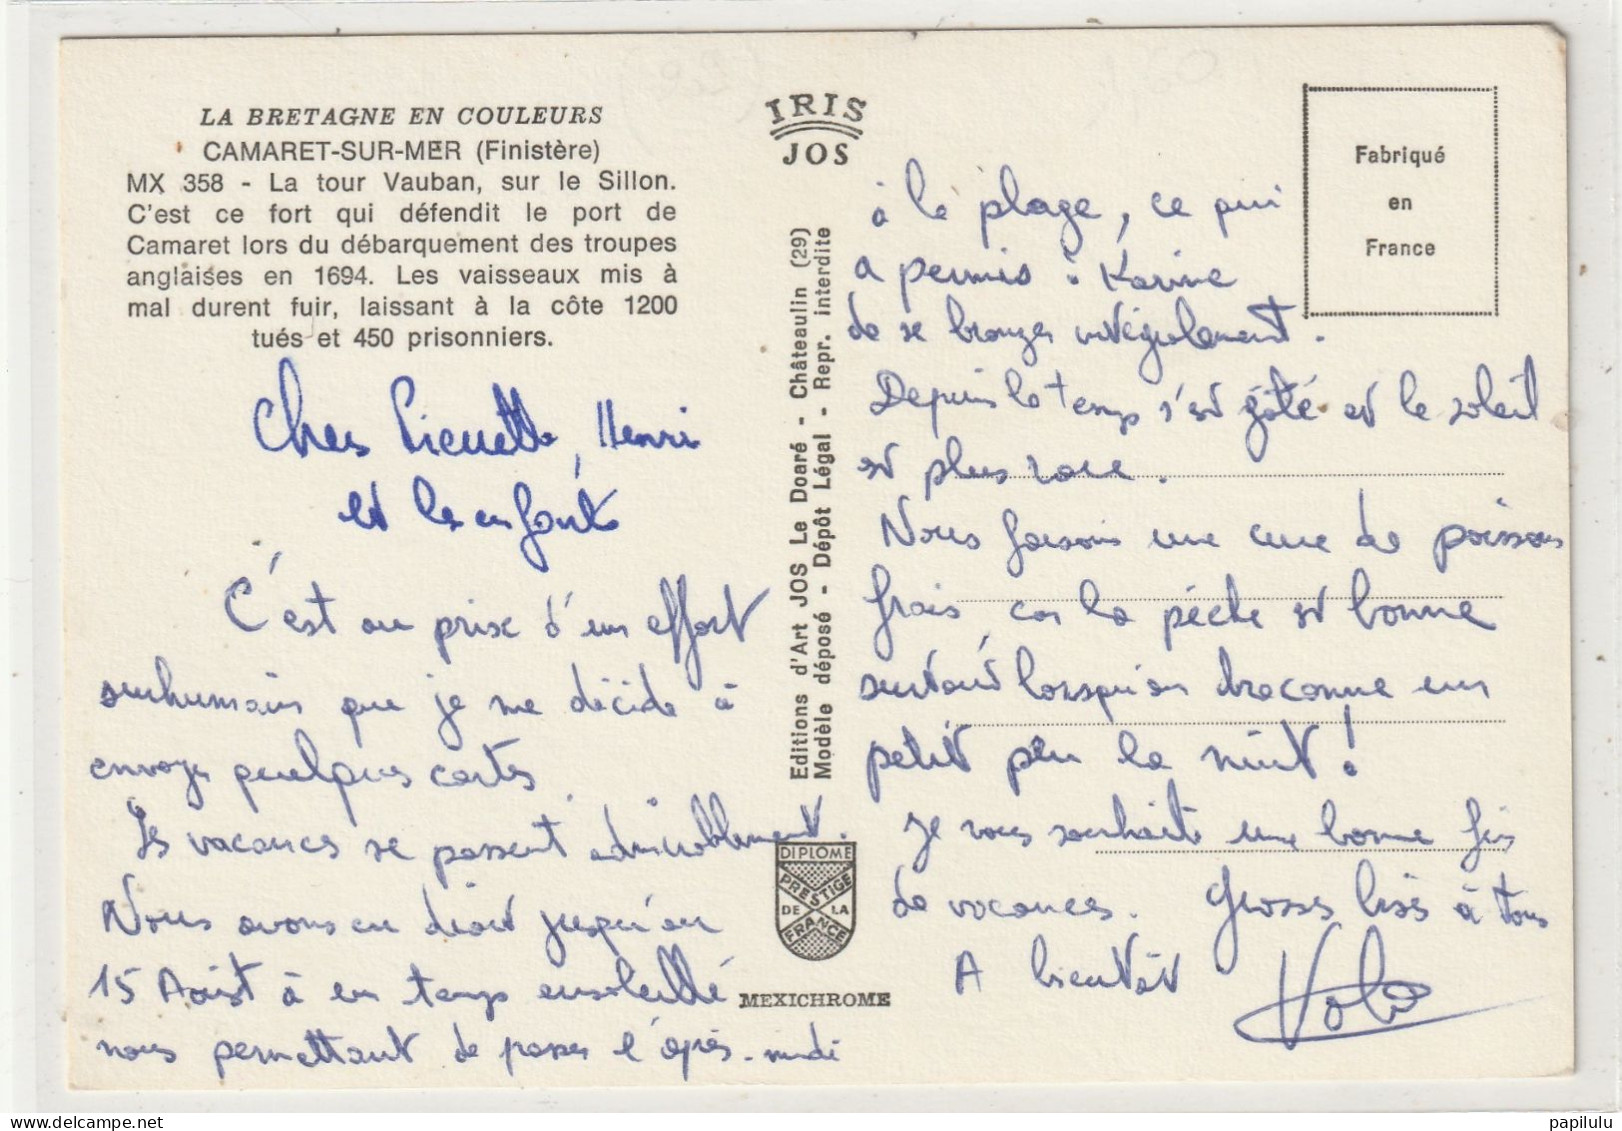 LA BRETAGNE EN COULEURS
CAMARET-SUR-MER (Finistère)
MX 358 - La tour Vauban, sur le Sillon.
C'est ce fort qui défendit le port de
Camaret lors du débarquement des troupes
anglaises en 1694. Les vaisseaux mis à
mal durent fuir, laissant à la côte 1200
tués et 450 prisonniers.
Chers Pierrette, Henri
et les enfants
C'est au prix d'un effort
surhumain que je me décide à
envoyer quelques cartes.
Les vacances se passent admirablement.
Nous avons eu droit jusqu'au
15 Août à un temps ensoleillé
nous permettant de passer l'après-midi
IRIS
JOS
Editions d'Art JOS Le Doaré - Châteaulin (29)
Modèle déposé - Dépôt Légal - Repr. interdite
DIPLOME
PRESTIGE
DE LA
FRANCE
MEXICHROME
Fabriqué
en
France
à la plage, ce qui
a permis à Karine
de se bronzer intégralement.
Depuis le temps s'est gâté et le soleil
est plus rare.
Nous faisons une cure de poissons
frais car la pêche est bonne
surtout lorsqu'on braconne un
petit peu la nuit !
Je vous souhaite une bonne fin
de vacances. Grosses bises à tous
A bientôt